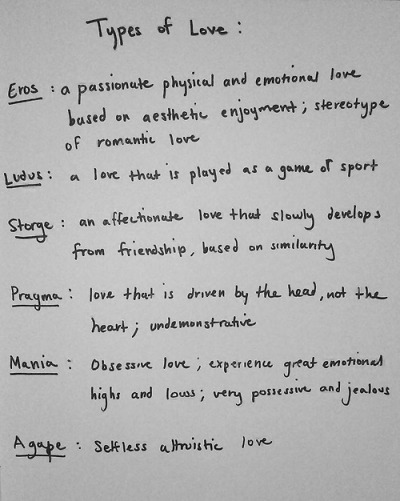 Types of Love :
Eros : a passionate physical and emotional love
based on aesthetic enjoyment ; stereotype
of romantic love
Ludus : a love that is played as a game of sport
Storge : an affectionate love that slowly develops
from friendship, based on similarity
Pragma : love that is driven by the head, not the
heart ; undemonstrative
Mania : Obsessive love ; experience great emotional
highs and lows ; very possessive and jealous
Agape : Selfless altruistic love